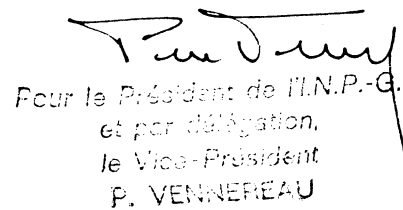 Pour le Président de l'I.N.P.-G.
et par délégation,
le Vice-Président
P. VENNEREAU